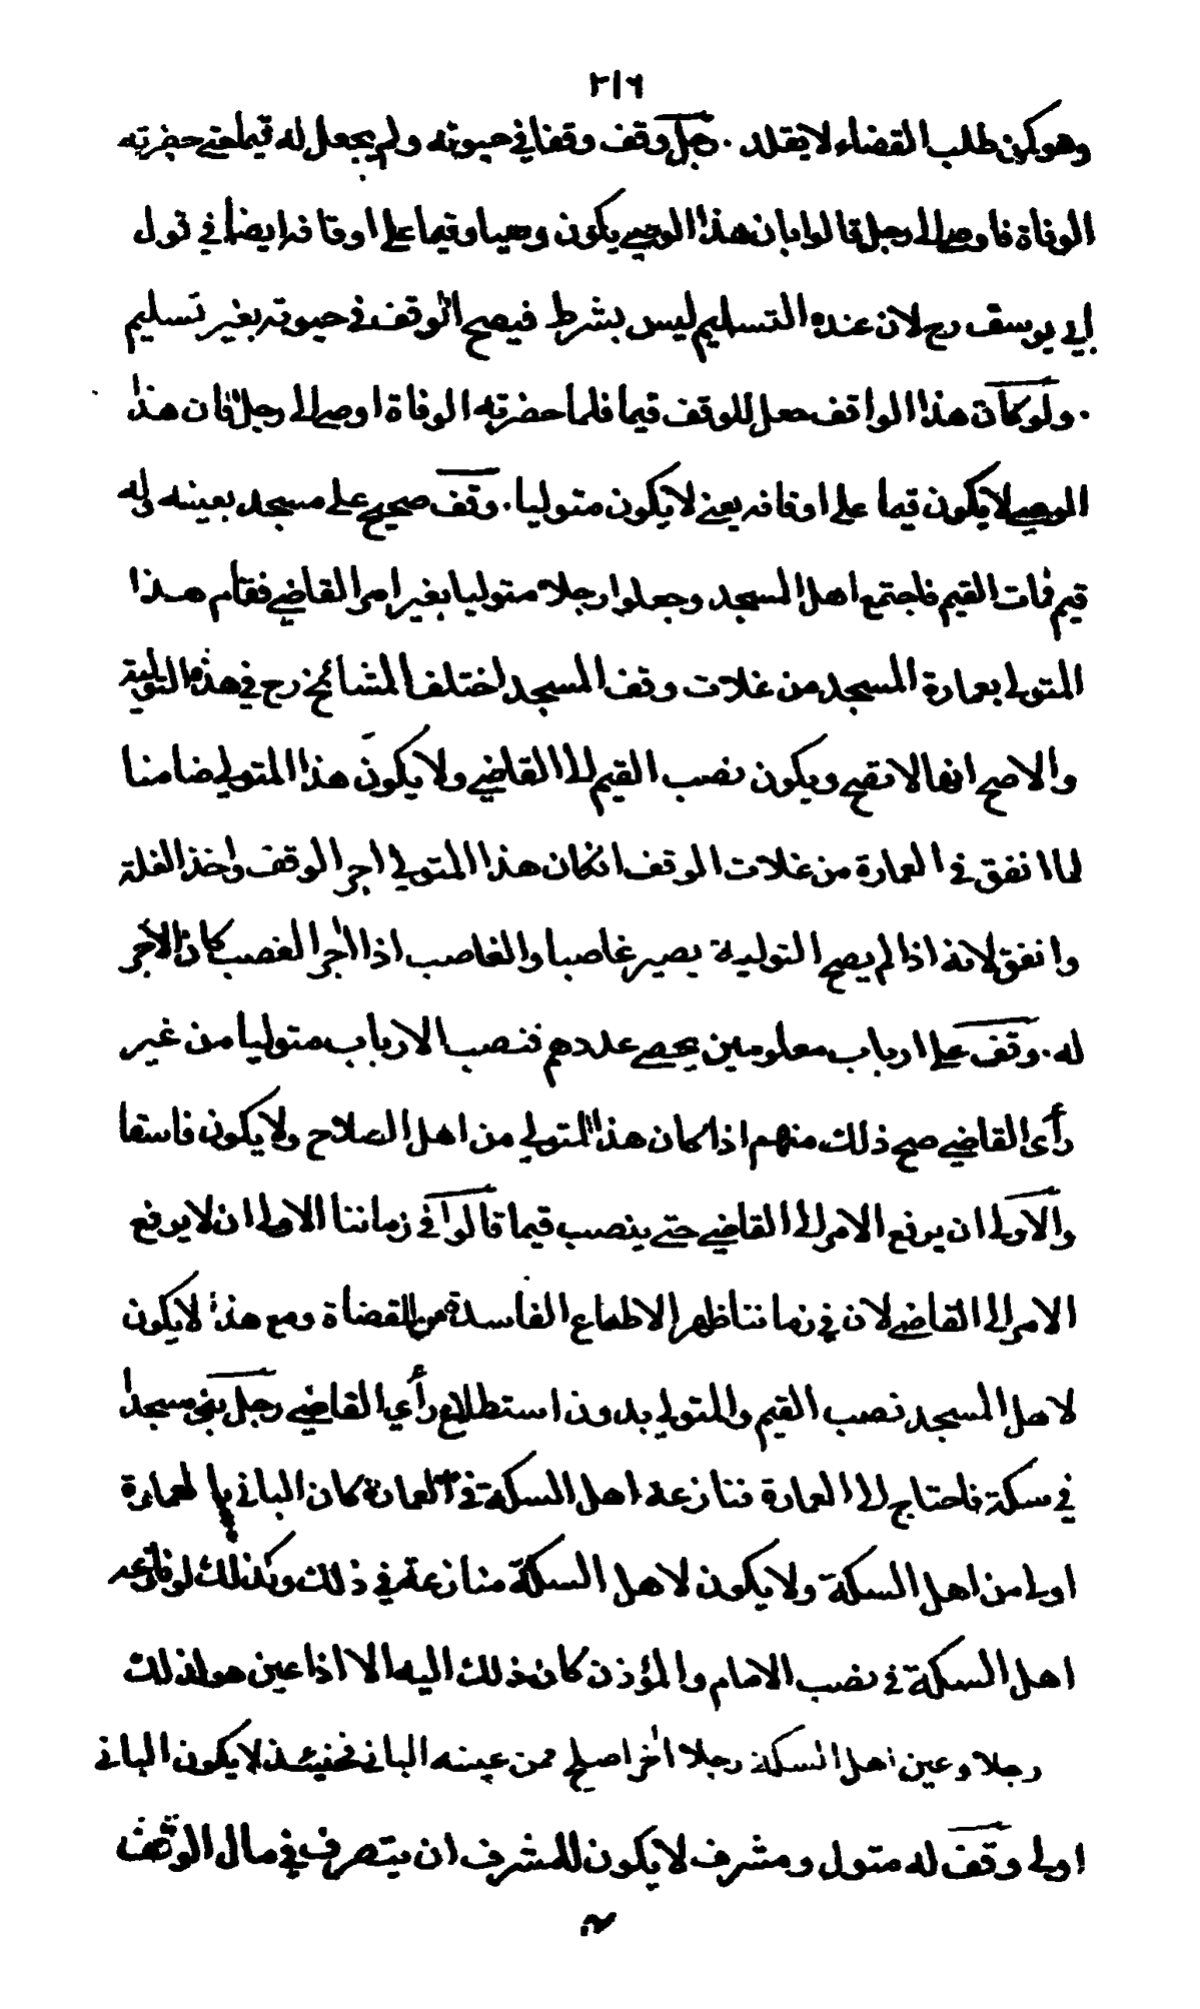 ٢١٦
وهو كمن طلب القضاء لا يقلد . رجل وقف وقفا في حيوته ولم يجعل له قيما حتى حضرته
الوفاة فاوصى الى رجل قالوا بان هذا الوصي يكون وصيا وقيما على اوقافه ايضا في قول
ابي يوسف رح لان عنده التسليم ليس بشرط فيصح الوقف في حيوته بغير تسليم
. ولو كان هذا الواقف جعل للوقف قيما فلما حضرته الوفاة اوصى الى رجل فان هذا
الوصي لا يكون قيما على اوقافه يعني لا يكون متوليا . وقف صحيح على مسجد بعينه وله
قيم فمات القيم فاجتمع اهل المسجد وجعلوا رجلا متوليا بغير امر القاضي فقام هذا
المتولي بعمارة المسجد من غلات وقف المسجد اختلف المشائخ رح في هذه التولية
والاصح انها لا تصح ويكون نصب القيم الى القاضي ولا يكون هذا المتولي ضامنا
لما انفق في العمارة من غلات الوقف انكان هذا المتولي اجر الوقف واخذ الغلة
وانفق لانه اذا لم يصح التولية يصير غاصبا والغاصب اذا اجر الغصب كان الاجر
له . وقف على ارباب معلومين يحصى عددهم فنصب الارباب متوليا من غير
رأى القاضي صح ذلك منهم اذا كان هذا المتولي من اهل الصلاح ولا يكون فاسقا
والاولى ان يرفع الامر الى القاضي حتى ينصب قيما قالوا في زماننا الاولى ان لا يرفع
الامر الى القاضي لان في زماننا ظهر الاطماع الفاسدة من القضاة ومع هذا لا يكون
لاهل المسجد نصب القيم والمتولي بدون استطلاع رأي القاضي رجل بنى مسجدا
في سكة فاحتاج الى العمارة فنازعه اهل السكة في العمارة كان الباني بالعمارة
اولى من اهل السكة ولا يكون لاهل السكة منازعته في ذلك وكذلك لو نازعه
اهل السكة في نصب الامام والمؤذن كان ذلك اليه الا اذا عين هو لذلك
رجلا وعين اهل السكة رجلا اخر اصلح ممن عينه الباني فحينئذ لا يكون الباني
اولى وقف له متول ومشرف لا يكون للمشرف ان يتصرف في مال الوقف